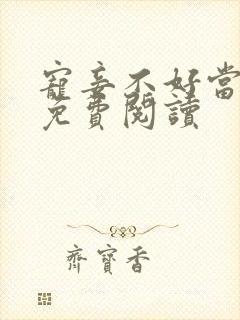 寵妾不好當
免費閱讀
齊寶香